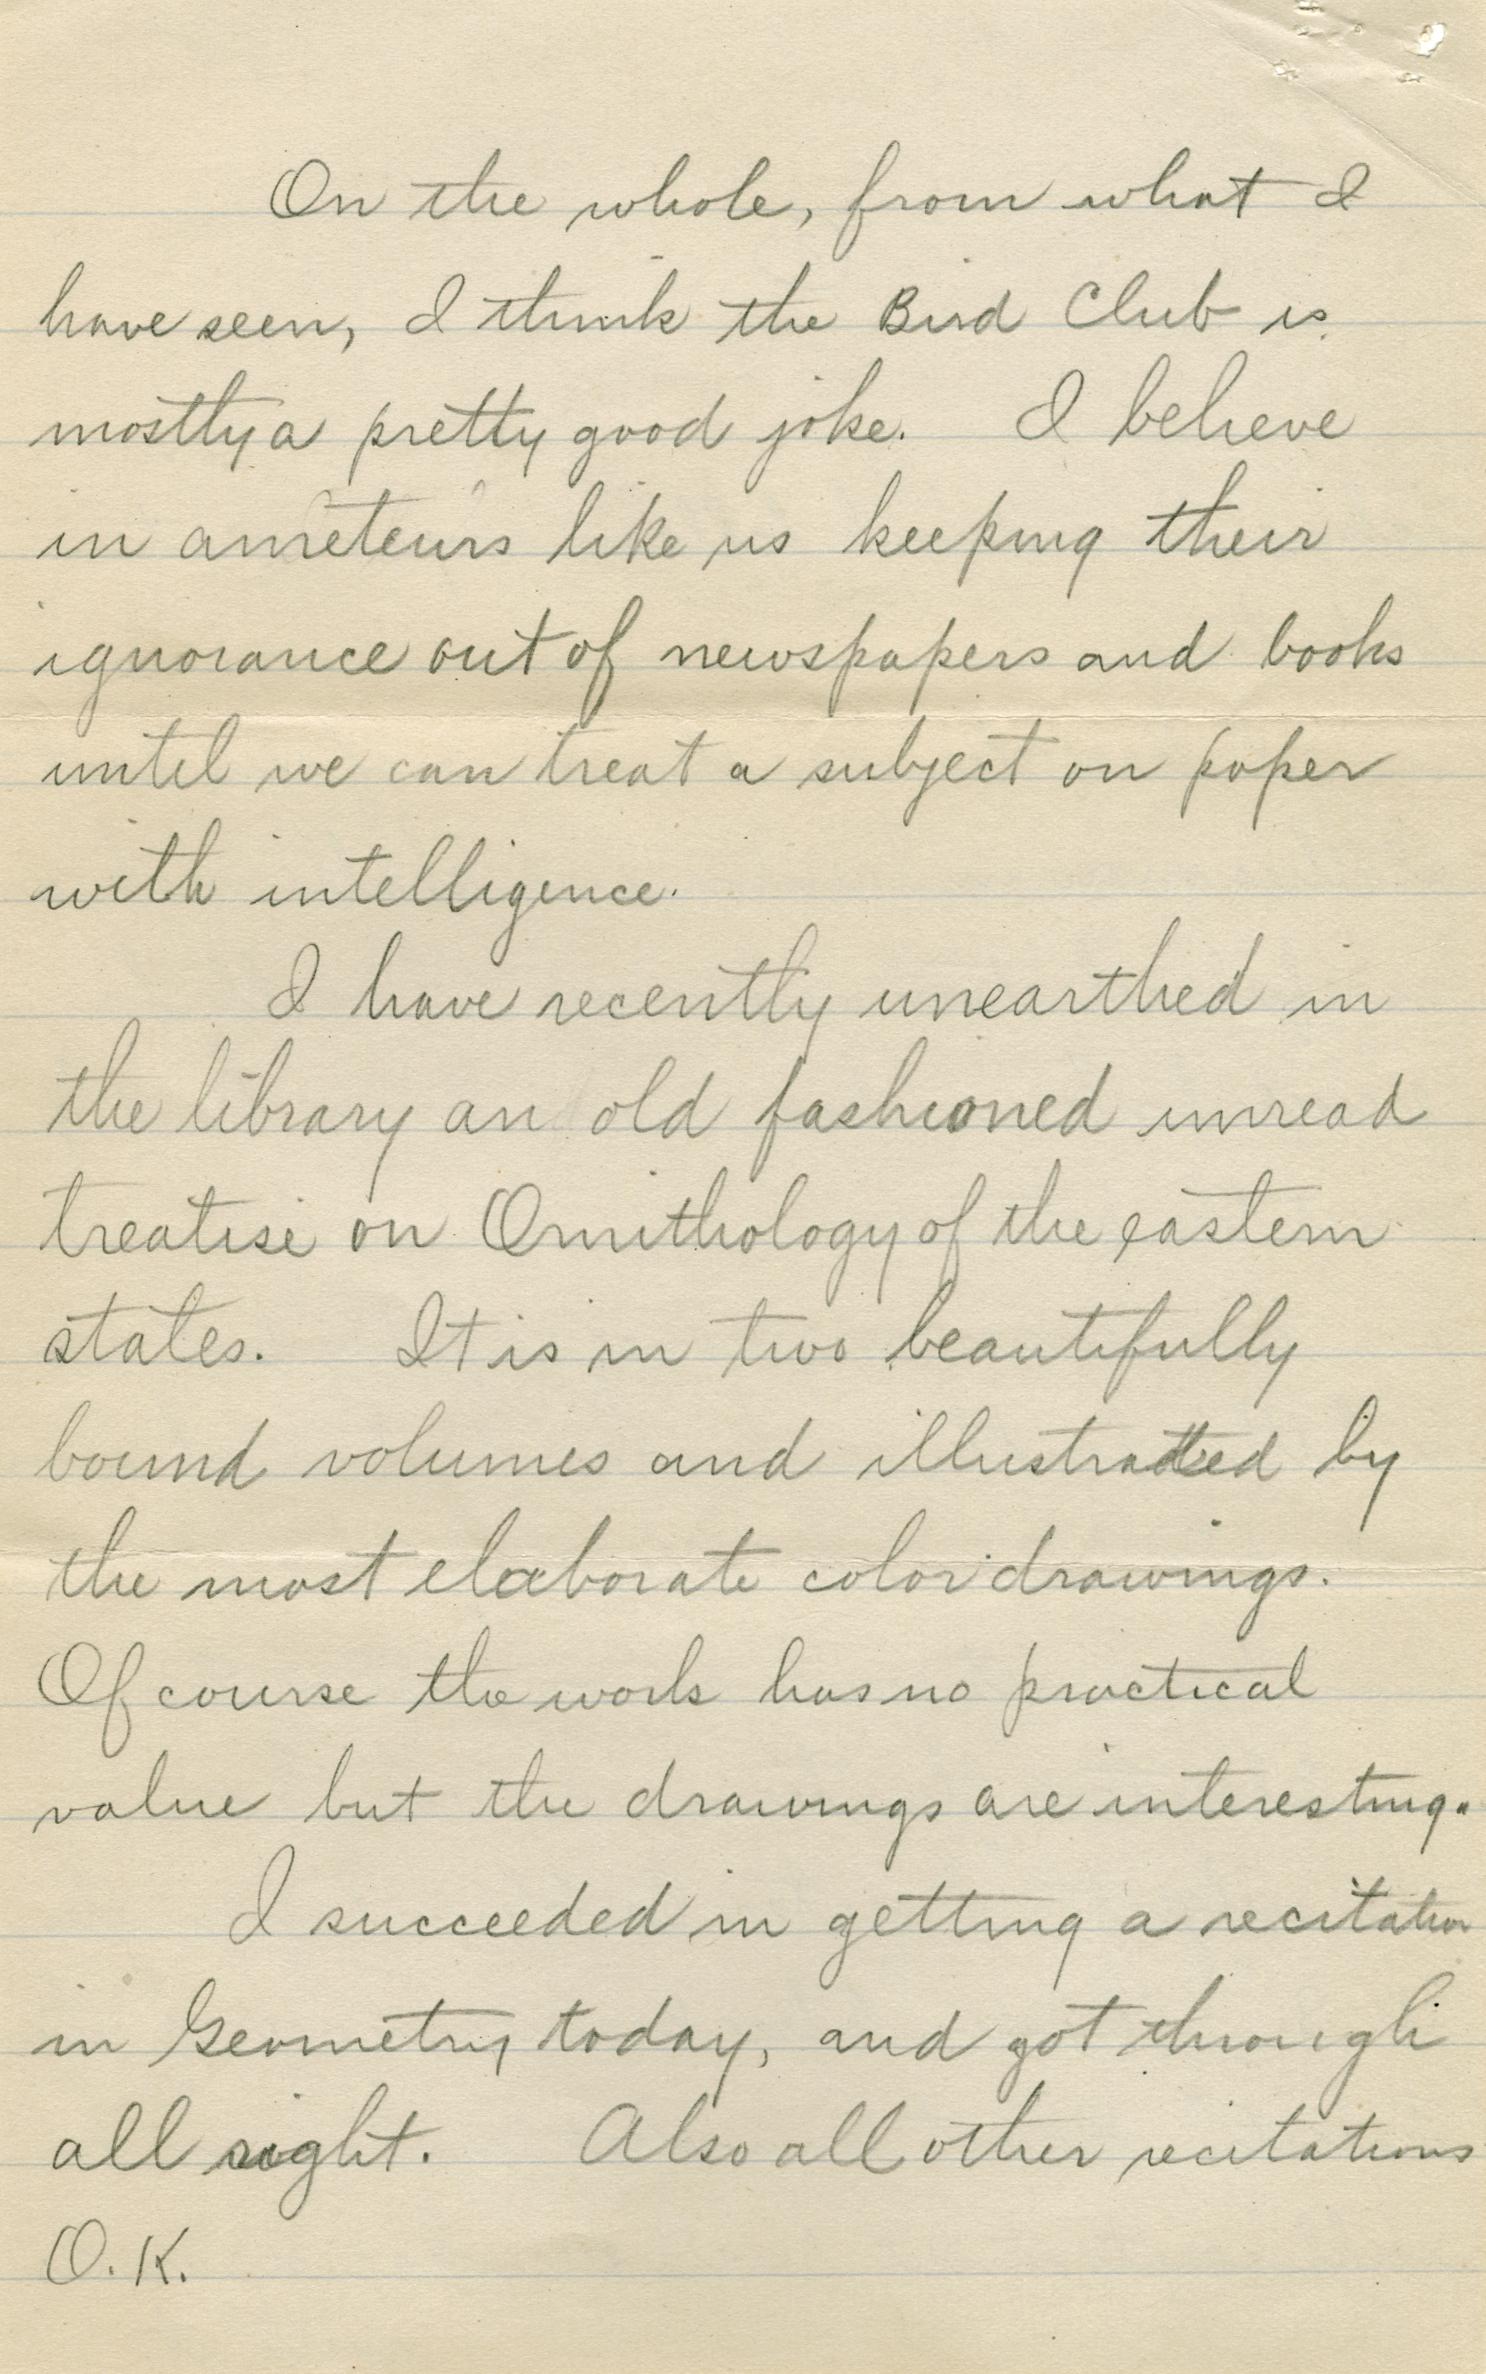 On the whole, from what I
have seen, I think the Bird Club is
mostly a pretty good joke. I believe
in ameteurs like us keeping their
ignorance out of newspapers and books
until we can treat a subject on paper
with intelligence.
I have recently unearthed in
the library an old fashioned unread
treatise on Ornithology of the eastern
states. It is in two beautifully
bound volumes and illustrated by
the most elaborate color drawings.
Of course the work has no practical
value but the drawings are interesting.
I succeeded in getting a recitation
in Geometry today, and got through
all right. Also all other recitations
O.K.